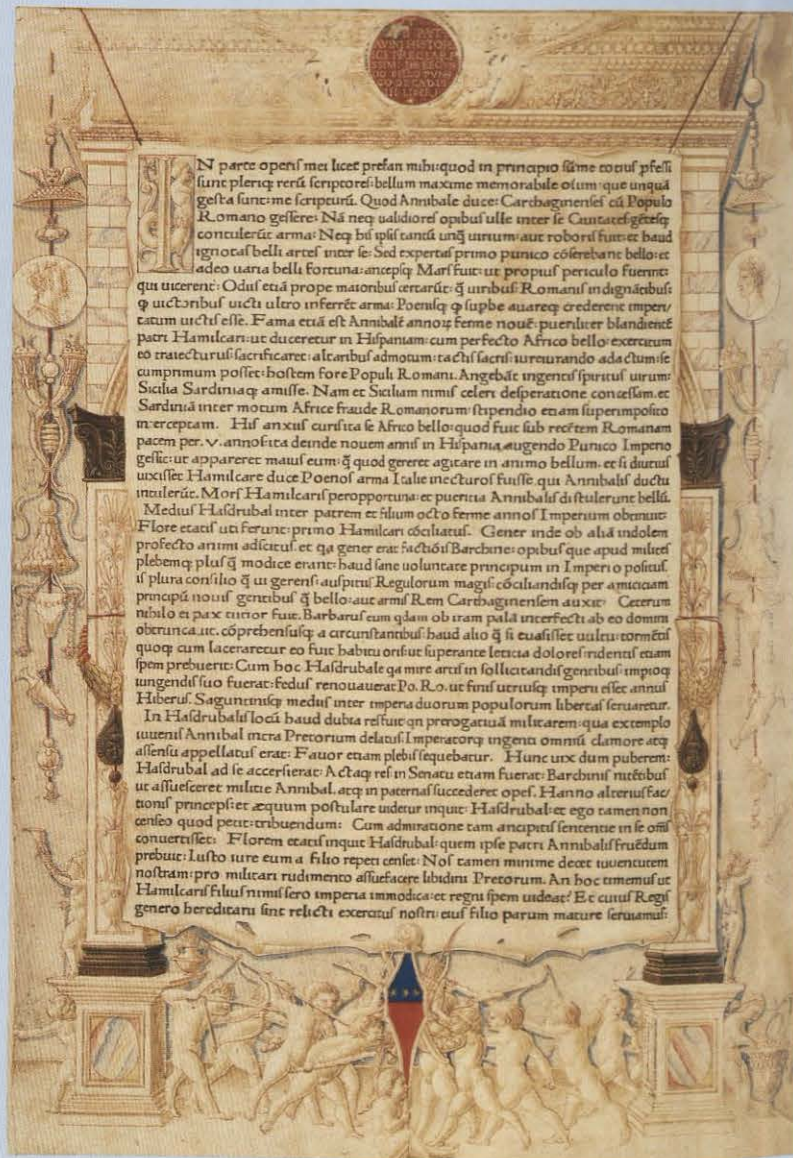 T. LIVII PAT
AVINI HISTOR
ICI PRECLARIS
SIMI DE SECUN
DO BELLO PUNI
CO DECADIS
III LIBER I
IN parte operis mei licet prefari mihi: quod in principio sũme totius p̃fessi
sunt pleriq; rerũ scriptores: bellum maxime memorabile oĩum: que unquã
gesta sunt: me scripturũ. Quod Annibale duce: Carthaginenses cũ Populo
Romano gessere: Nã neq; ualidiores opibus ulle inter se Ciuitates gẽtesq;
contulerũt arma: Neq; his ipsis tantũ unq̃ uirium: aut roboris fuit: et haud
ignotas belli artes inter se: Sed expertas primo punico cõserebant bello: et
adeo uaria belli fortuna: ancepsq; Mars fuit: ut propius periculo fuerint:
qui uicerent: Odiis etiã prope maioribus certarũt: q̃ uiribus: Romanis indignãtibus
ꝙ uictoribus uicti ultro inferrẽt arma: Poenisq; ꝙ supbe auareq; crederent imperi/
tatum uictis esse. Fama etiã est Annibalẽ annoꝝ ferme nouẽ: pueriliter blandientẽ
patri Hamilcari: ut duceretur in Hispaniam: cum perfecto Africo bello: exercitum
eo traiecturus sacrificaret: altaribus admotum: tactis sacris: iureiurando adactum: se
cumprimum posset: hostem fore Populi Romani. Angebãt ingentis spiritus uirum:
Sicilia Sardiniaq; amisse. Nam et Siciliam nimis celeri desperatione concessam. et
Sardiniã inter motum Africe fraude Romanorum: stipendio etiam superimposito
interceptam. His anxius curis ita se Africo bello: quod fuit sub recẽtem Romanam
pacem per .v. annos ita deinde nouem annis in Hispania augendo Punico Imperio
gessit: ut appareret maius eum: q̃ quod gereret agitare in animo bellum. et si diutius
uixisset Hamilcare duce Poenos arma Italie inlecturos fuisse. qui Annibalis ductu
intulerũt. Mors Hamilcaris peropportuna: et pueritia Annibalis distulerunt bellũ.
Medius Hasdrubal inter patrem et filium octo ferme annos Imperium obtinuit:
Flore etatis uti ferunt: primo Hamilcari cõciliatus. Gener inde ob aliã indolem
profecto animi adscitus. et qa gener erat factiõis Barchine: opibus que apud milites
plebemq; plus q̃ modice erant: haud sane uoluntate principum in Imperio positus.
is plura consilio q̃ ui gerens: auspitiis Regulorum magis: cõciliandisq; per amicitiam
principũ nouis gentibus q̃ bello: aut armis Rem Carthaginensem auxit: Ceterum
nihilo ei pax tutior fuit. Barbarus eum qdam ob iram palã interfecti ab eo domini
obtruncauit. cõprehensusq; a circunstantibus haud alio q̃ si euasisset uultu: tormẽtis
quoq; cum laceraretur eo fuit habitu oris: ut superante leticia dolores: ridentis etiam
spem prebuerit: Cum hoc Hasdrubale qa mire artis in sollicitandis gentibus: imperioq;
iungendis suo fuerat: fedus renouauerat Po. Ro. ut finis utriusq; imperii esset annus
Hiberus. Saguntinisq; mediis inter imperia duorum populorum libertas seruaretur.
In Hasdrubalis locũ haud dubia res fuit qn prerogatiuã militarem: qua extemplo
iuuenis Annibal intra Pretorium delatus: Imperatorq; ingenti omniũ clamore atq;
assensu appellatus erat: Fauor etiam plebis sequebatur. Hunc uix dum puberem:
Hasdrubal ad se accersierat: Actaq; res in Senatu etiam fuerat: Barchinis nitẽtibus
ut assuesceret militie Annibal. atq; in paternas succederet opes. Hanno alterius fac/
tionis princeps: et æquum postulare uidetur inquit: Hasdrubal: et ego tamen non
censeo quod petit: tribuendum: Cum admiratione tam ancipitis sententie in se oms̃
conuertisset: Florem etatis inquit Hasdrubal: quem ipse patri Annibalis fruẽdum
prebuit: Iusto iure eum a filio repeti censet: Nos tamen minime decet iuuentutem
nostram: pro militari rudimento assuefacere libidini Pretorum. An hoc timemus ut
Hamilcaris filius nimis sero imperia immodica: et regni spem uideat? Et cuius Regis
genero hereditarii sint relicti exercitus nostri: eius filio parum mature seruiamus: